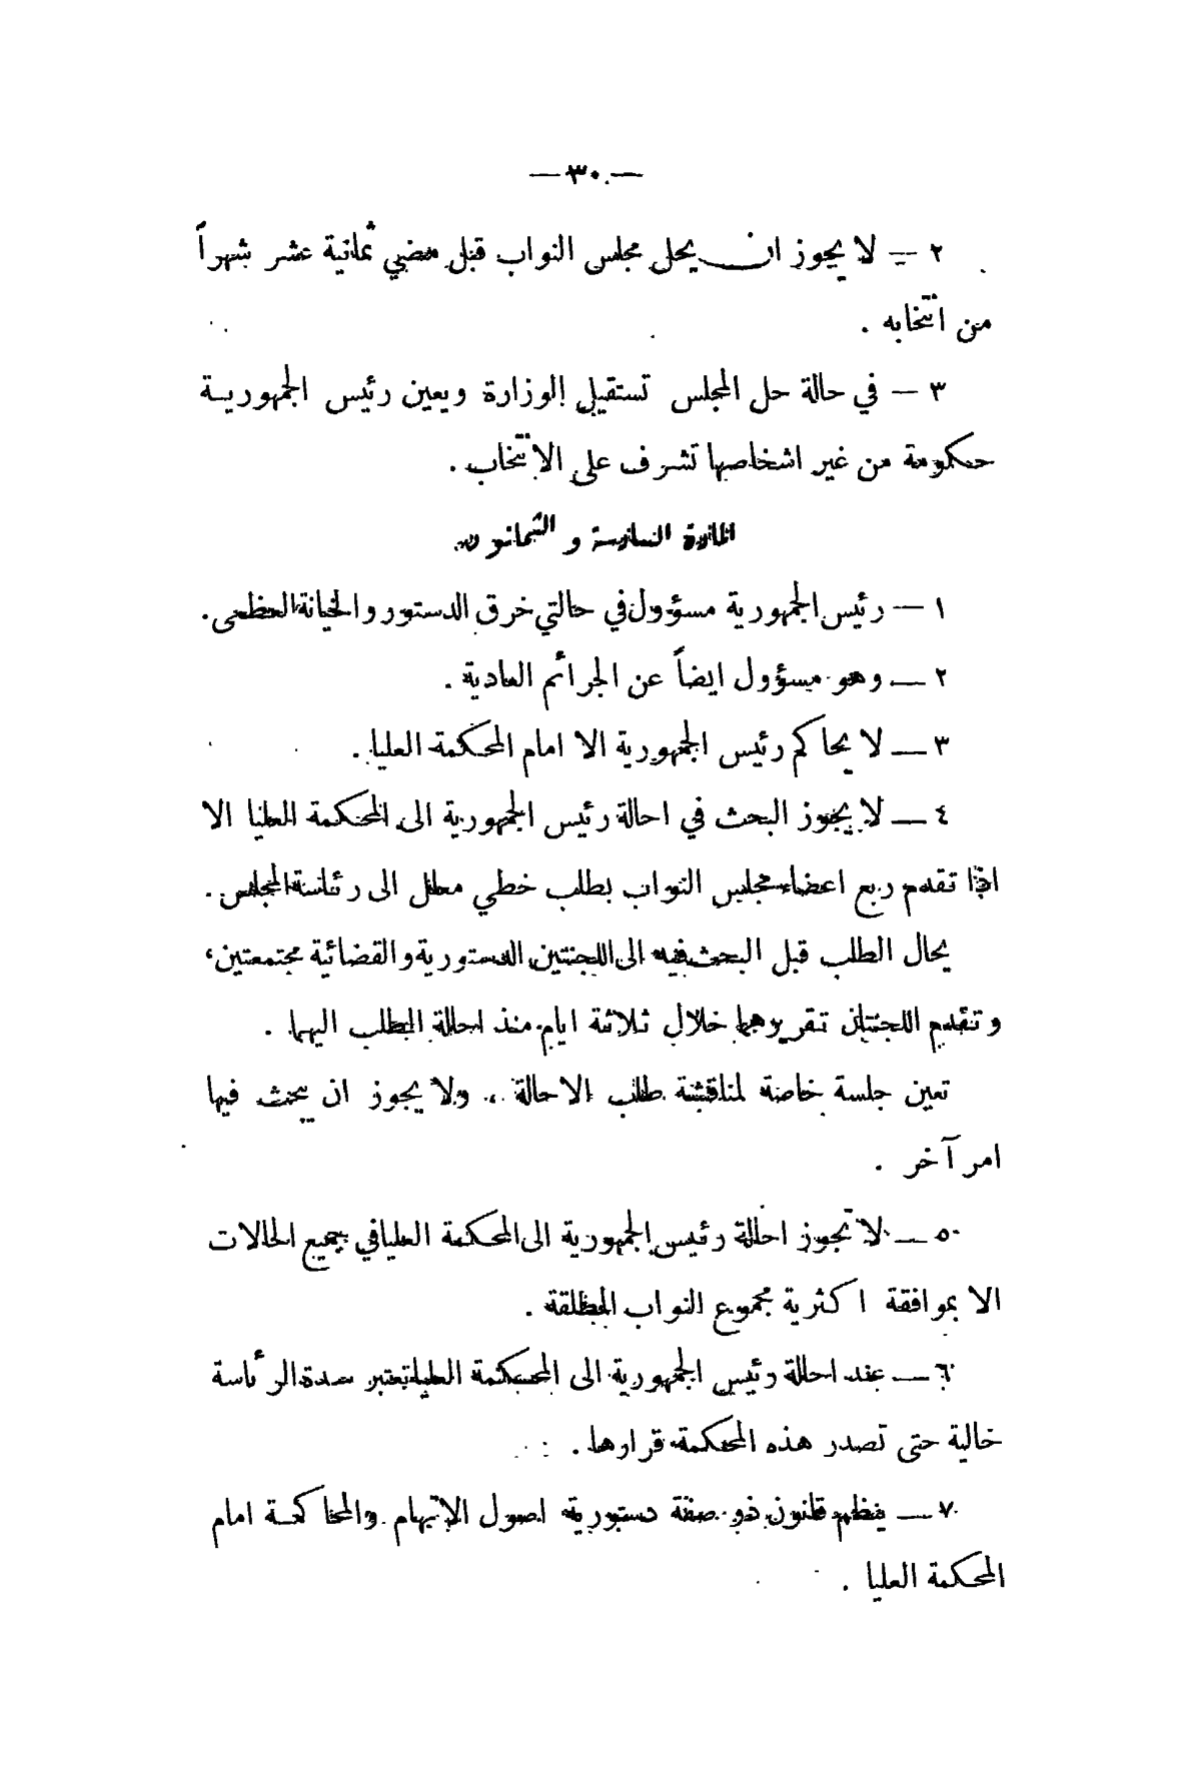 — ٣٠ —
٢ — لا يجوز ان يحل مجلس النواب قبل مضي ثمانية عشر شهراً
من انتخابه .
٣ — في حالة حل المجلس تستقيل الوزارة ويعين رئيس الجمهوريـة
حكومة من غير اشخاصها تشرف على الانتخاب .
المادة السادسة و الثمانون
١ — رئيس الجمهورية مسؤول في حالتي خرق الدستور والخيانة العظمى .
٢ — وهو مسؤول ايضاً عن الجرائم العادية .
٣ — لا يحاكم رئيس الجمهورية الا امام المحكمة العليا .
٤ — لا يجوز البحث في احالة رئيس الجمهورية الى المحكمة العليا الا
اذا تقدم ربع اعضاء مجلس النواب بطلب خطي معلل الى رئاسة المجلس .
يحال الطلب قبل البحث فيه الى اللجنتين الدستورية والقضائية مجتمعتين ،
وتقدم اللجنتان تقريرهما خلال ثلاثة ايام منذ احالة الطلب اليهما .
تعين جلسة خاصة لمناقشة طلب الاحالة ، ولا يجوز ان يبحث فيها
امر آخر .
٥ — لا تجوز احالة رئيس الجمهورية الى المحكمة العليا في جميع الحالات
الا بموافقة اكثرية مجموع النواب المطلقة .
٦ — عند احالة رئيس الجمهورية الى المحكمة العليا تعتبر سدة الرئاسة
خالية حتى تصدر هذه المحكمة قرارها .
٧ — ينظم قانون ذو صفة دستورية اصول الاتهام والمحاكمـة امام
المحكمة العليا .